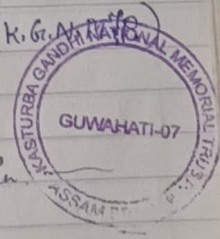 K.G.N.
KASTURBA GANDHI NATIONAL MEMORIAL TRUST
GUWAHATI-07
ASSAM